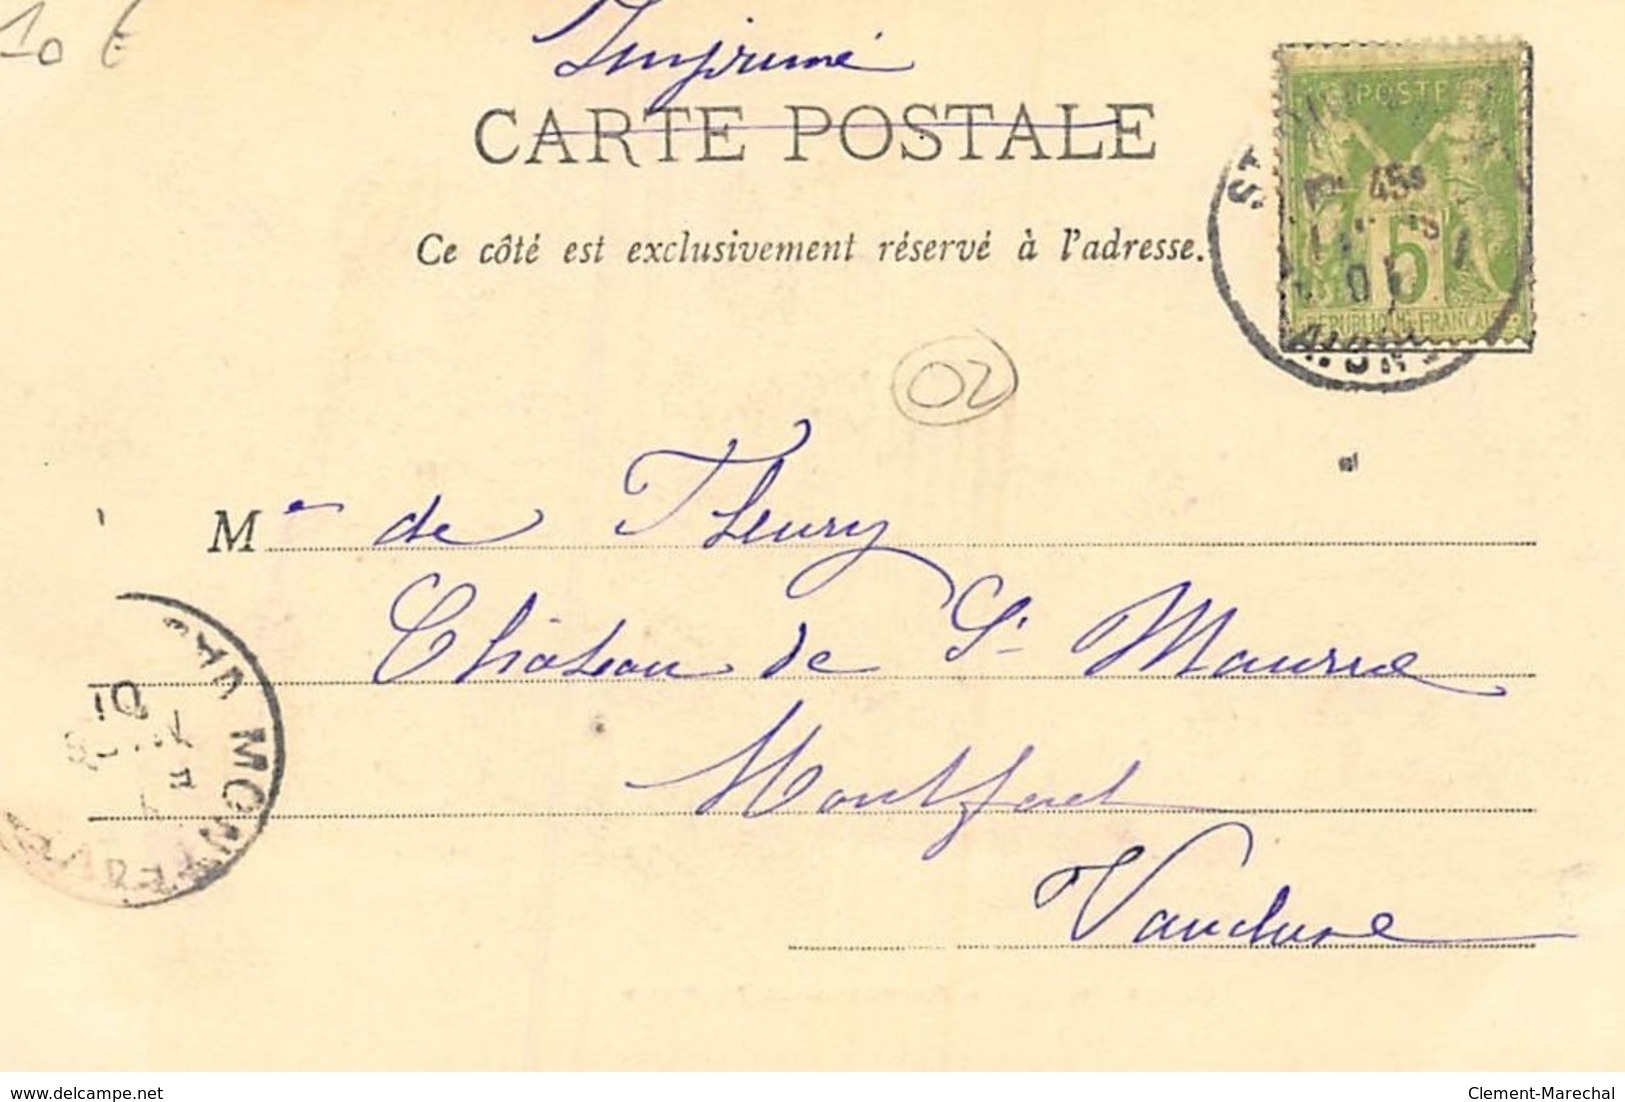 10 €
Imprimé
CARTE POSTALE
Ce côté est exclusivement réservé à l'adresse.
POSTE
5
RÉPUBLIQUE FRANÇAISE
ST
45
01
AISNE
02
Me de Fleury
Château de St Maurice
Montfavet
Vaucluse
MONTFAVET
01
www.delcampe.net
Clement-Marechal